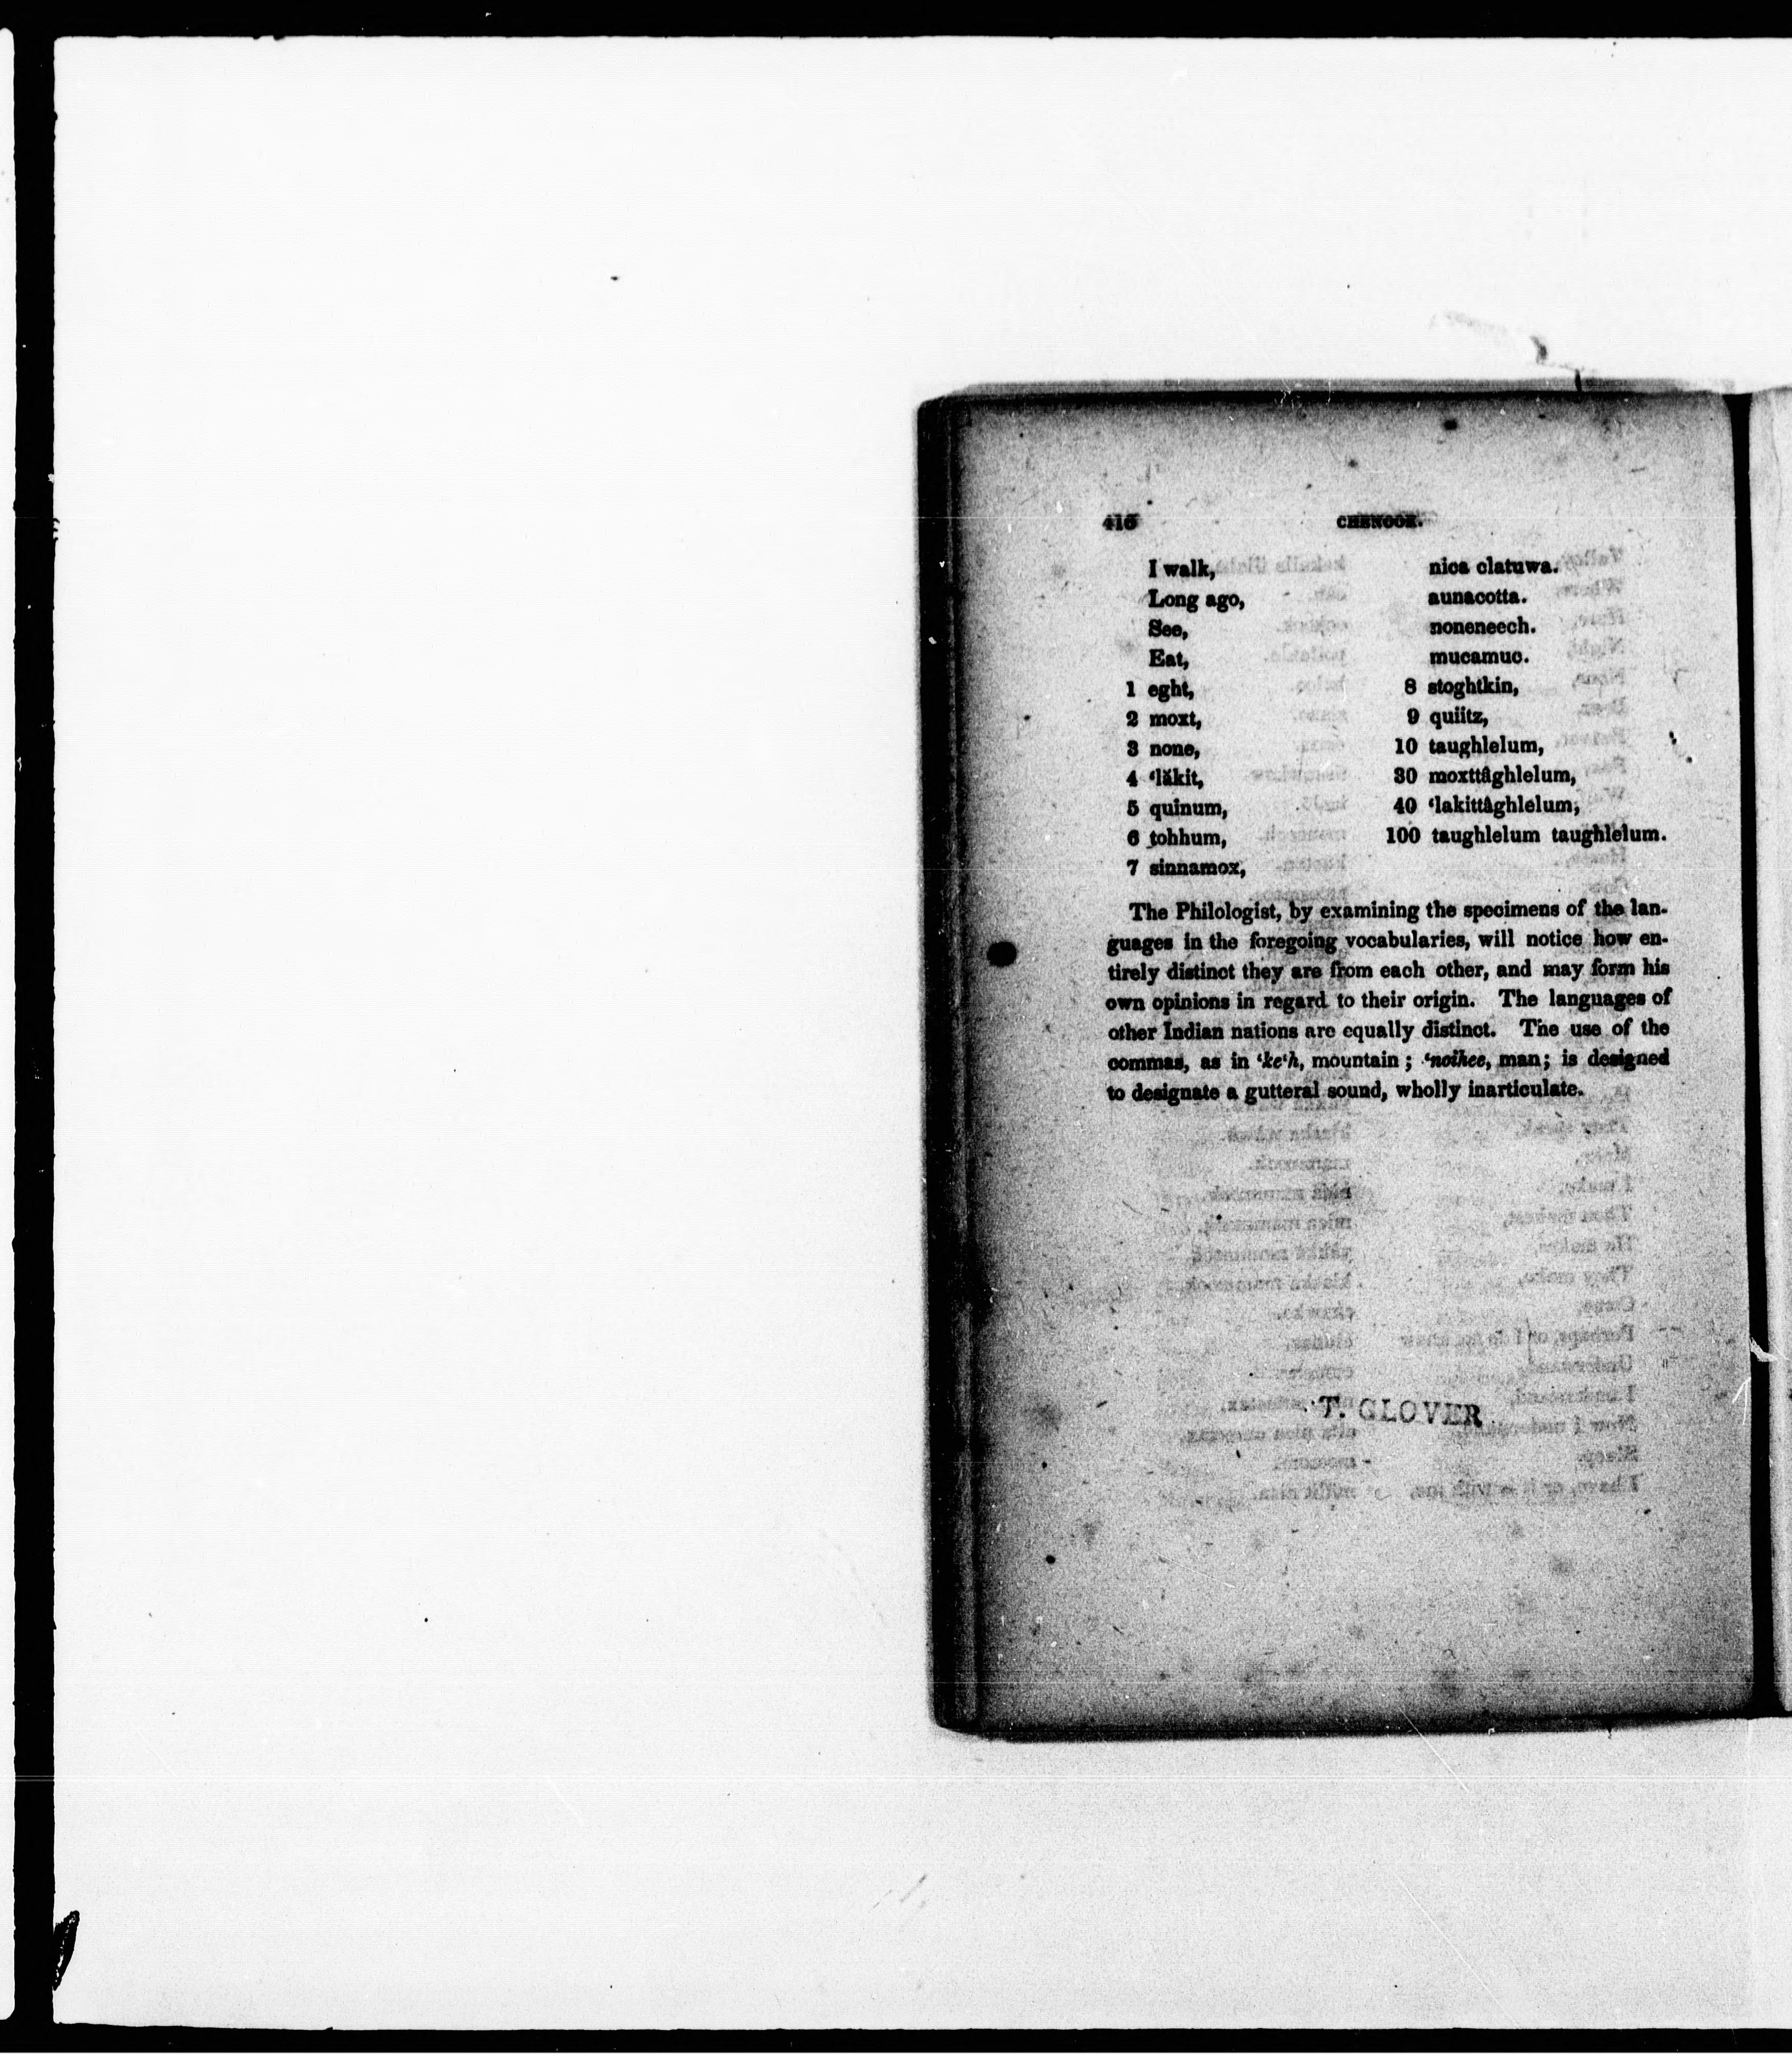 416 CHENOOK.
I walk, nica clatuwa.
Long ago, aunacotta.
See, noneneech.
Eat, mucamuc.
1 eght, 8 stoghtkin,
2 moxt, 9 quiitz,
3 none, 10 taughlelum,
4 ‘lăkit, 30 moxttâghlelum,
5 quinum, 40 ‘lakittâghlelum,
6 tohhum, 100 taughlelum taughlelum.
7 sinnamox,
The Philologist, by examining the specimens of the lan-
guages in the foregoing vocabularies, will notice how en-
tirely distinct they are from each other, and may form his
own opinions in regard to their origin. The languages of
other Indian nations are equally distinct. The use of the
commas, as in ‘ke‘h, mountain; ‘noihee, man; is designed
to designate a gutteral sound, wholly inarticulate.
T. GLOVER